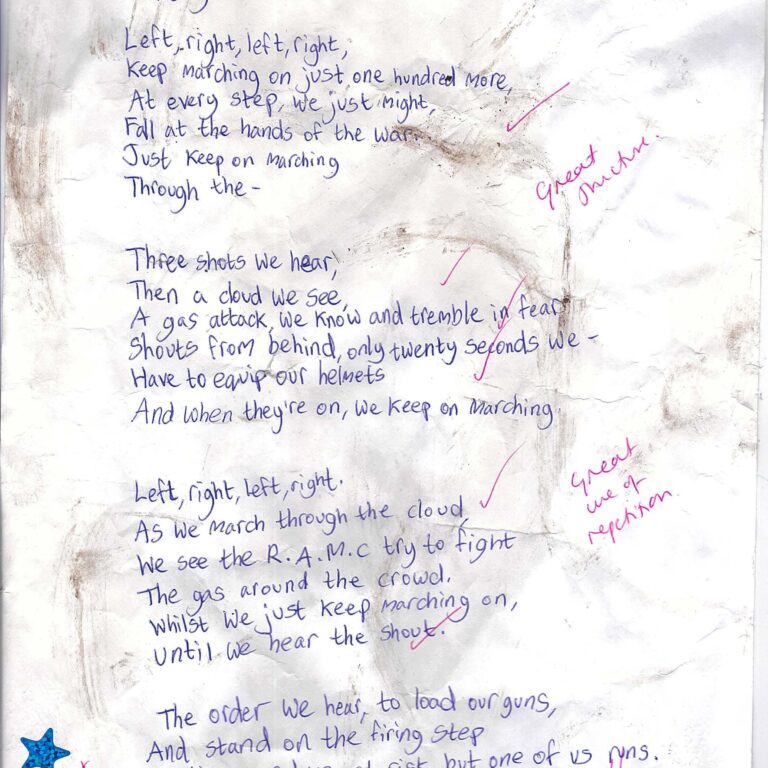 Left, right, left, right,
Keep marching on just one hundred more,
At every step, we just might,
Fall at the hands of the war.
Just keep on marching
Through the -
Great
structure.
Three shots we hear,
Then a cloud we see,
A gas attack, we know and tremble in fear
Shouts from behind, only twenty seconds we -
Have to equip our helmets
And when they're on, we keep on marching.
Left, right, left, right.
As we march through the cloud,
We see the R.A.M.C try to fight
The gas around the crowd.
Whilst we just keep marching on,
Until we hear the shout.
Great
use of
repetition.
The order we hear, to load our guns,
And stand on the firing step
but one of us runs.